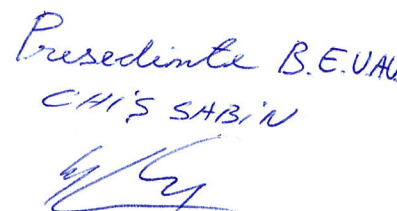 Presedinte B.E.U.A.U.
CHIŞ SABIN